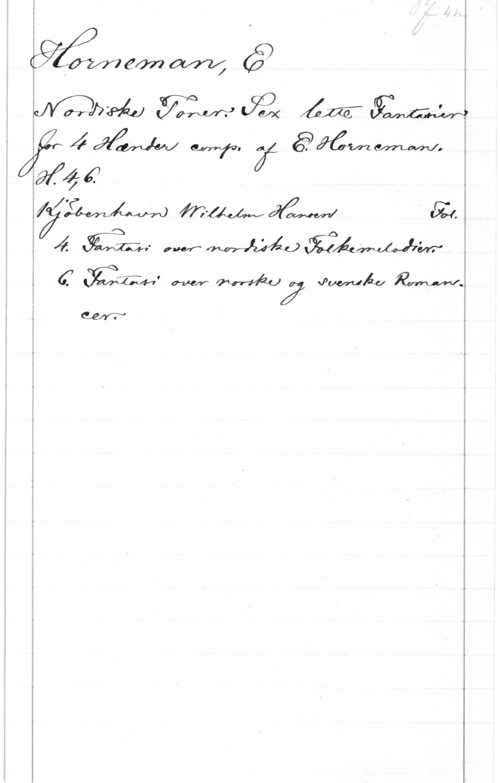 Horneman, E
Nordiske Toner. Sex lette Fantasier
for 4 Hænder comp. af E. Horneman.
H. 4, 6.
Kjöbenhavn Wilhelm Hansen Fol.
4. Fantasi over nordiske Folkemelodier.
6. Fantasi over norske og svenske Roman-
cer.